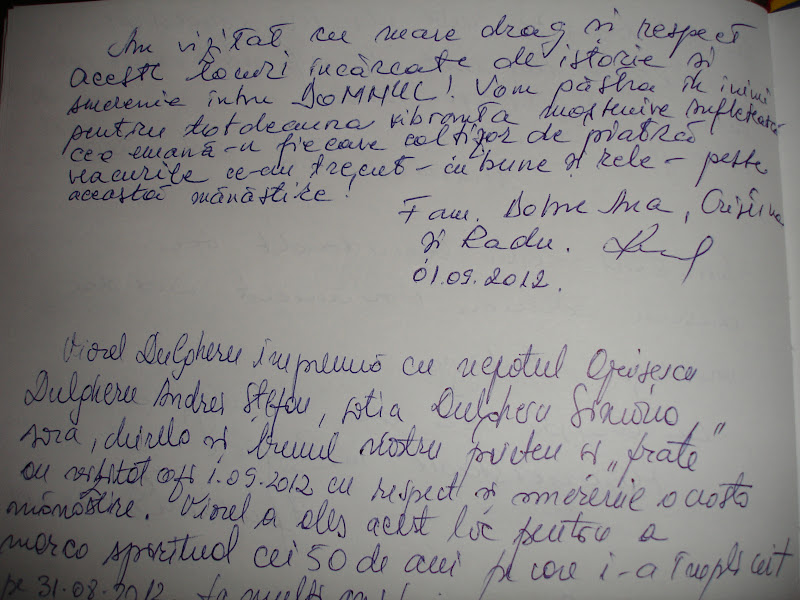 Am vizitat cu mare drag și respect
aceste locuri încărcate de istorie și
smerenie întru DOMNUL! Vom păstra în inimi
pentru totdeauna vibranta moștenire sufletească
ce-o emană-n fiecare colțișor de piatră
veacurile ce-au trecut - cu bune și rele - peste
această mănăstire!
Fam. Ana, Cristina
și Radu.
01.09.2012.
Viorel Dulgheru împreună cu nepotul
Dulgheru Andrei Ștefan, soția Dulgheru Simona, „
sora, și bunul nostru prieten și „frate
au vizitat azi 1.09.2012 cu respect și smerenie această
mănăstire. Viorel a ales acest loc pentru a
marca spiritual cei 50 de ani pe care i-a împlinit
pe 31.08.2012. La mulți ani!